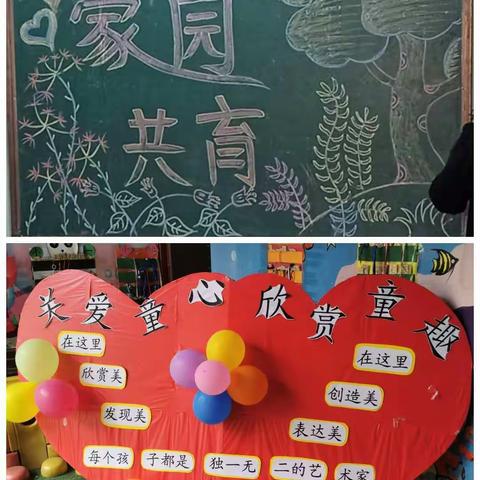 家园
共育
关爱童心欣赏童趣
在这里
欣赏美
发现美
在这里
创造美
表达美
每个孩子都是独一无二的艺术家